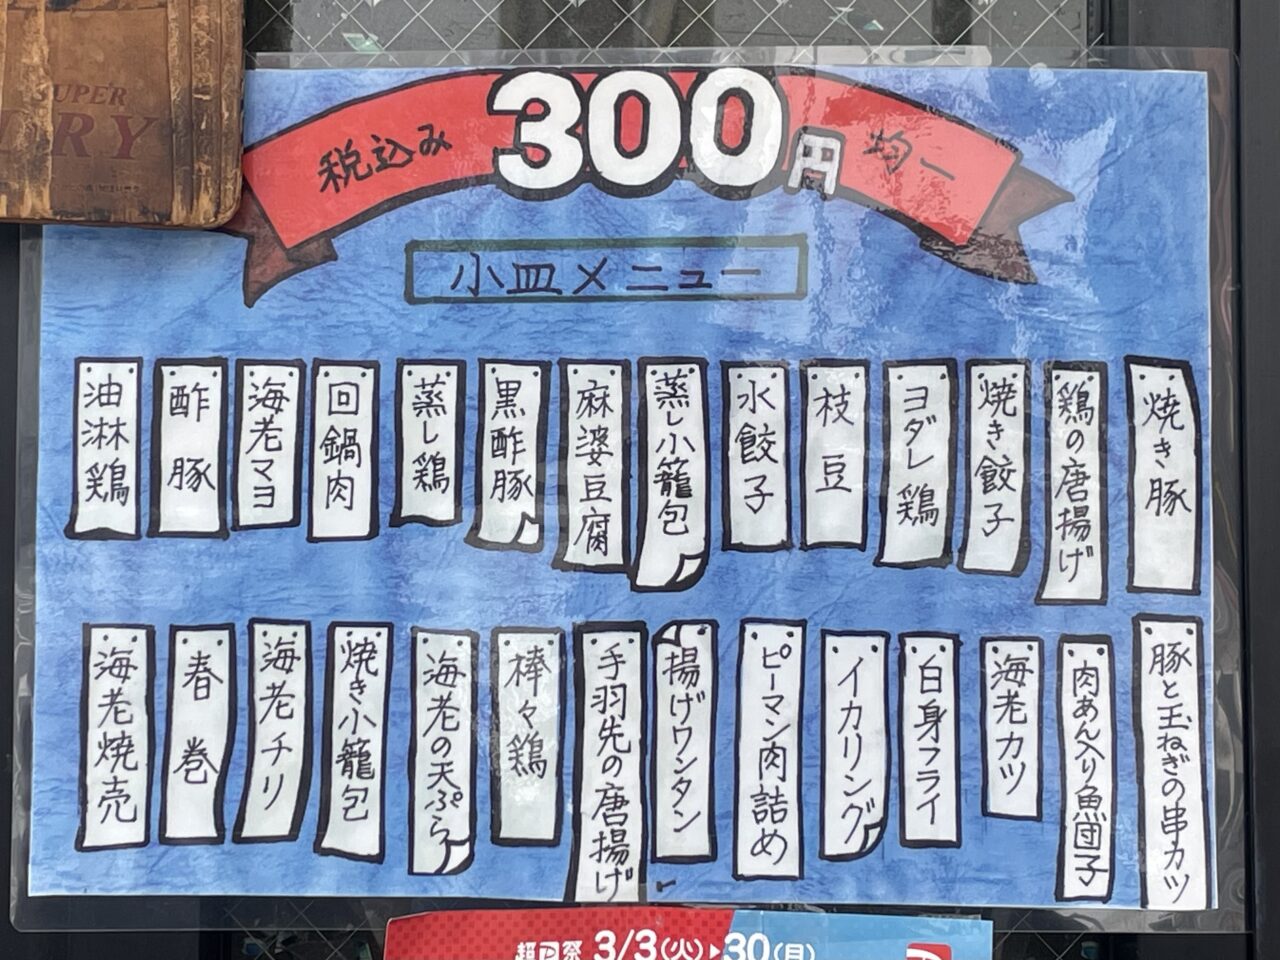 SUPER
DRY
税込み 300円 均一
小皿メニュー
焼き豚
鶏の唐揚げ
焼き餃子
ヨダレ鶏
枝豆
水餃子
蒸し小籠包
麻婆豆腐
黒酢豚
蒸し鶏
回鍋肉
海老マヨ
酢豚
油淋鶏
豚と玉ねぎの串カツ
肉あん入り魚団子
海老カツ
白身フライ
イカリング
ピーマン肉詰め
揚げワンタン
手羽先の唐揚げ
棒々鶏
海老の天ぷら
焼き小籠包
海老チリ
春巻
海老焼売
超PayPay祭 3/3(火)▶30(月)